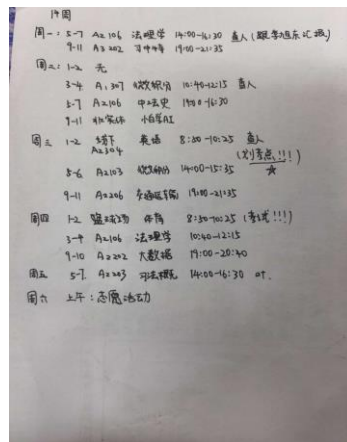 14周
周一: 5-7 A2106 法理学 14:00-16:30 查人
9-11 A3202 习 19:00-21:35
周二: 1-2 无
3-4 A1307 微积分 10:40-12:15 查人
5-7 A2106 中法史 14:00-16:30
9-11 AI
周三 1-2 线下 英语 8:50-10:25 查人
A2304 (划考点!!!)
5-6 A2103 微积分 14:00-15:35 ☆
9-11 A2206 19:00-21:35
周四 1-2 体育 8:50-10:25 (考试!!!)
3-4 A2106 法理学 10:40-12:15
9-10 A2202 大数据 19:00-20:40
周五 5-7 A2203 司法概论 14:00-16:30
周六 上午: 志愿活动